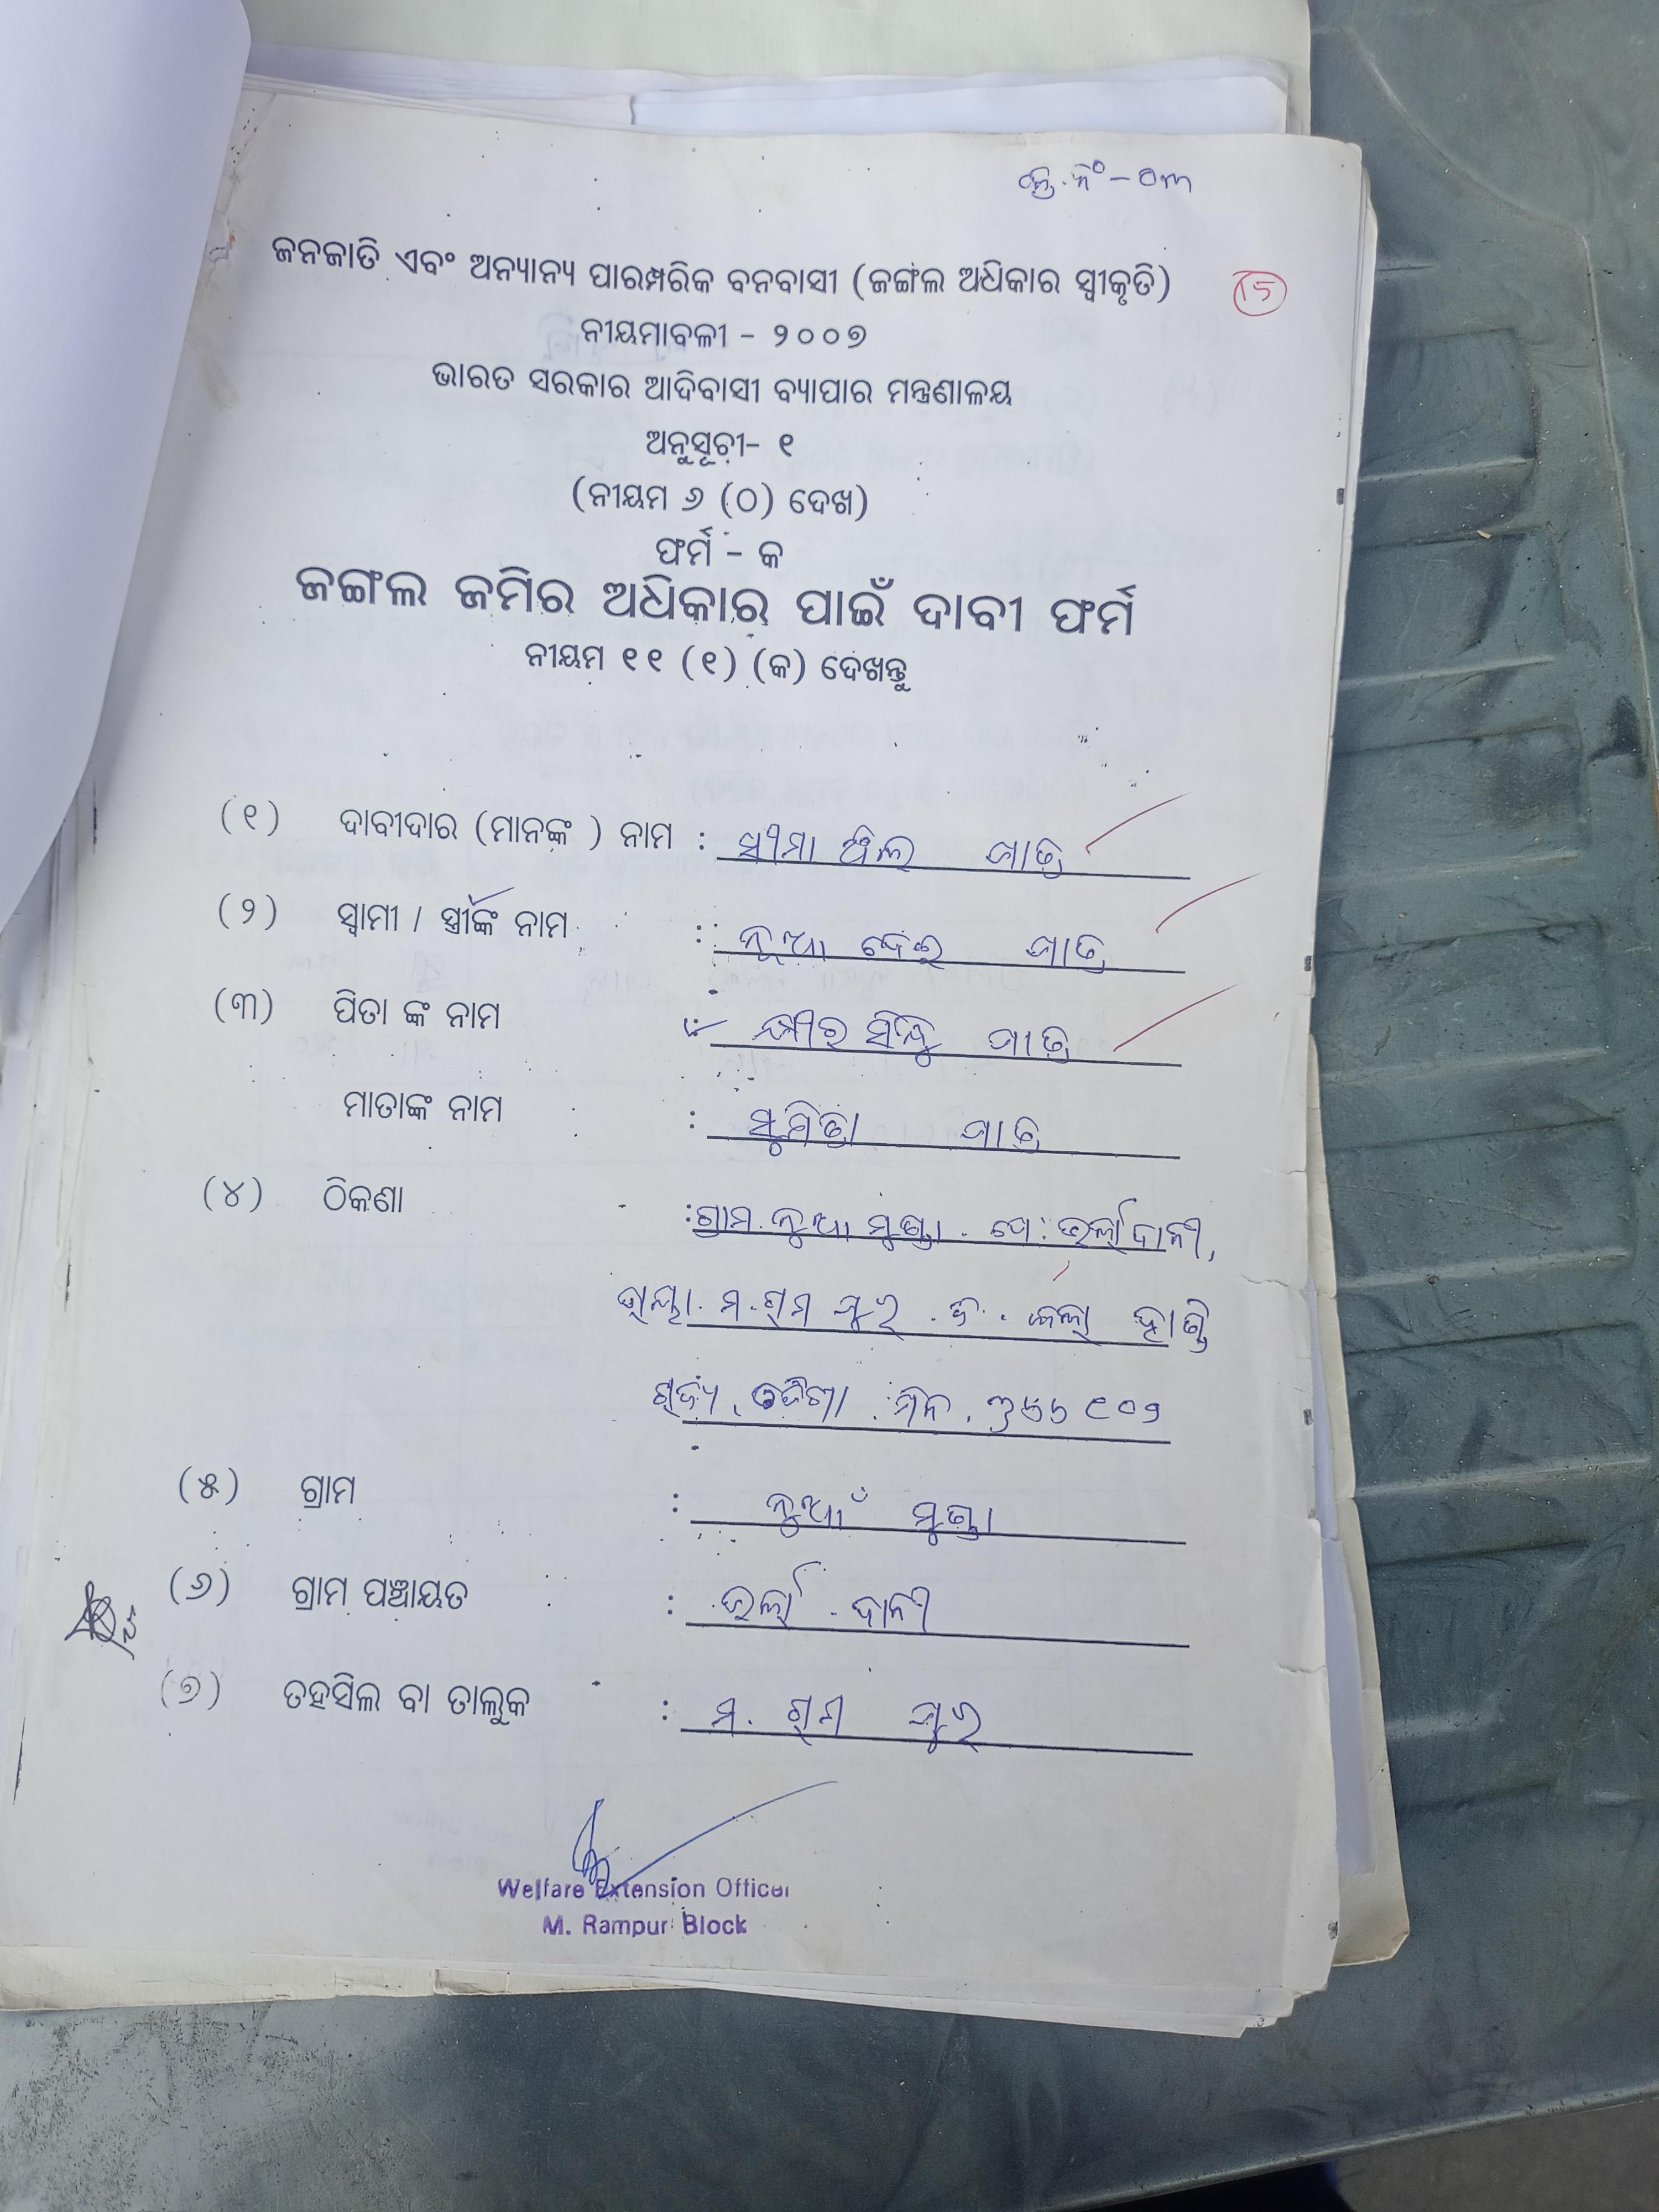 କ୍ର.ନଂ - ୦୩
ଜନଜାତି ଏବଂ ଅନ୍ୟାନ୍ୟ ପାରମ୍ପରିକ ବନବାସୀ (ଜଙ୍ଗଲ ଅଧିକାର ସ୍ୱୀକୃତି)
15
ନୀୟମାବଳୀ - ୨୦୦୭
ଭାରତ ସରକାର ଆଦିବାସୀ ବ୍ୟାପାର ମନ୍ତ୍ରଣାଳୟ
ଅନୁସୂଚୀ- ୧
(ନୀୟମ ୬ (ଠ) ଦେଖ)
ଫର୍ମ - କ
ଜଙ୍ଗଲ ଜମିର ଅଧିକାର ପାଇଁ ଦାବୀ ଫର୍ମ
ନୀୟମ ୧୧ (୧) (କ) ଦେଖନ୍ତୁ
(୧) ଦାବୀଦାର (ମାନଙ୍କ ) ନାମ : ପାତ୍ର
(୨) ସ୍ୱାମୀ / ସ୍ତ୍ରୀଙ୍କ ନାମ : ନୂଆ ଦେଈ ପାତ୍ର
(୩) ପିତା ଙ୍କ ନାମ : କ୍ଷୀର ସିନ୍ଧୁ ପାତ୍ର
ମାତାଙ୍କ ନାମ : ସୁମିତ୍ରା ପାତ୍ର
(୪) ଠିକଣା : ଗ୍ରାମ. ନୁଆ ମୁଣ୍ଡା. ପୋ:
ମ. ରାମ ପୁର. ଜି. କଳା ହାଣ୍ଡି
ରାଜ୍ୟ. ଓଡିଶା. ପିନ. ୭୬୬୧୦୨
(୫) ଗ୍ରାମ : ନୁଆଁ ମୁଣ୍ଡା
(୬) ଗ୍ରାମ ପଞ୍ଚାୟତ :
(୭) ତହସିଲ ବା ତାଲୁକ : ମ. ରାମ ପୁର
Welfare Extension Officer
M. Rampur Block